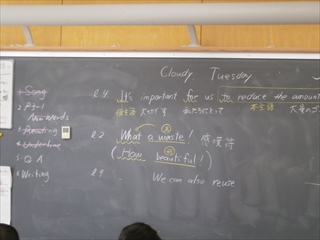 Cloudy Tuesday
1. Song
2. P3-1
New Words
3. Reacting
4. Underline
5. Q A
6. Writing
l.4. It's important for us to reduce the amount
大切です 私たちにとって 不定詞
l.2 What a waste! 感嘆符
(How beautiful!)
l.9 We can also reuse